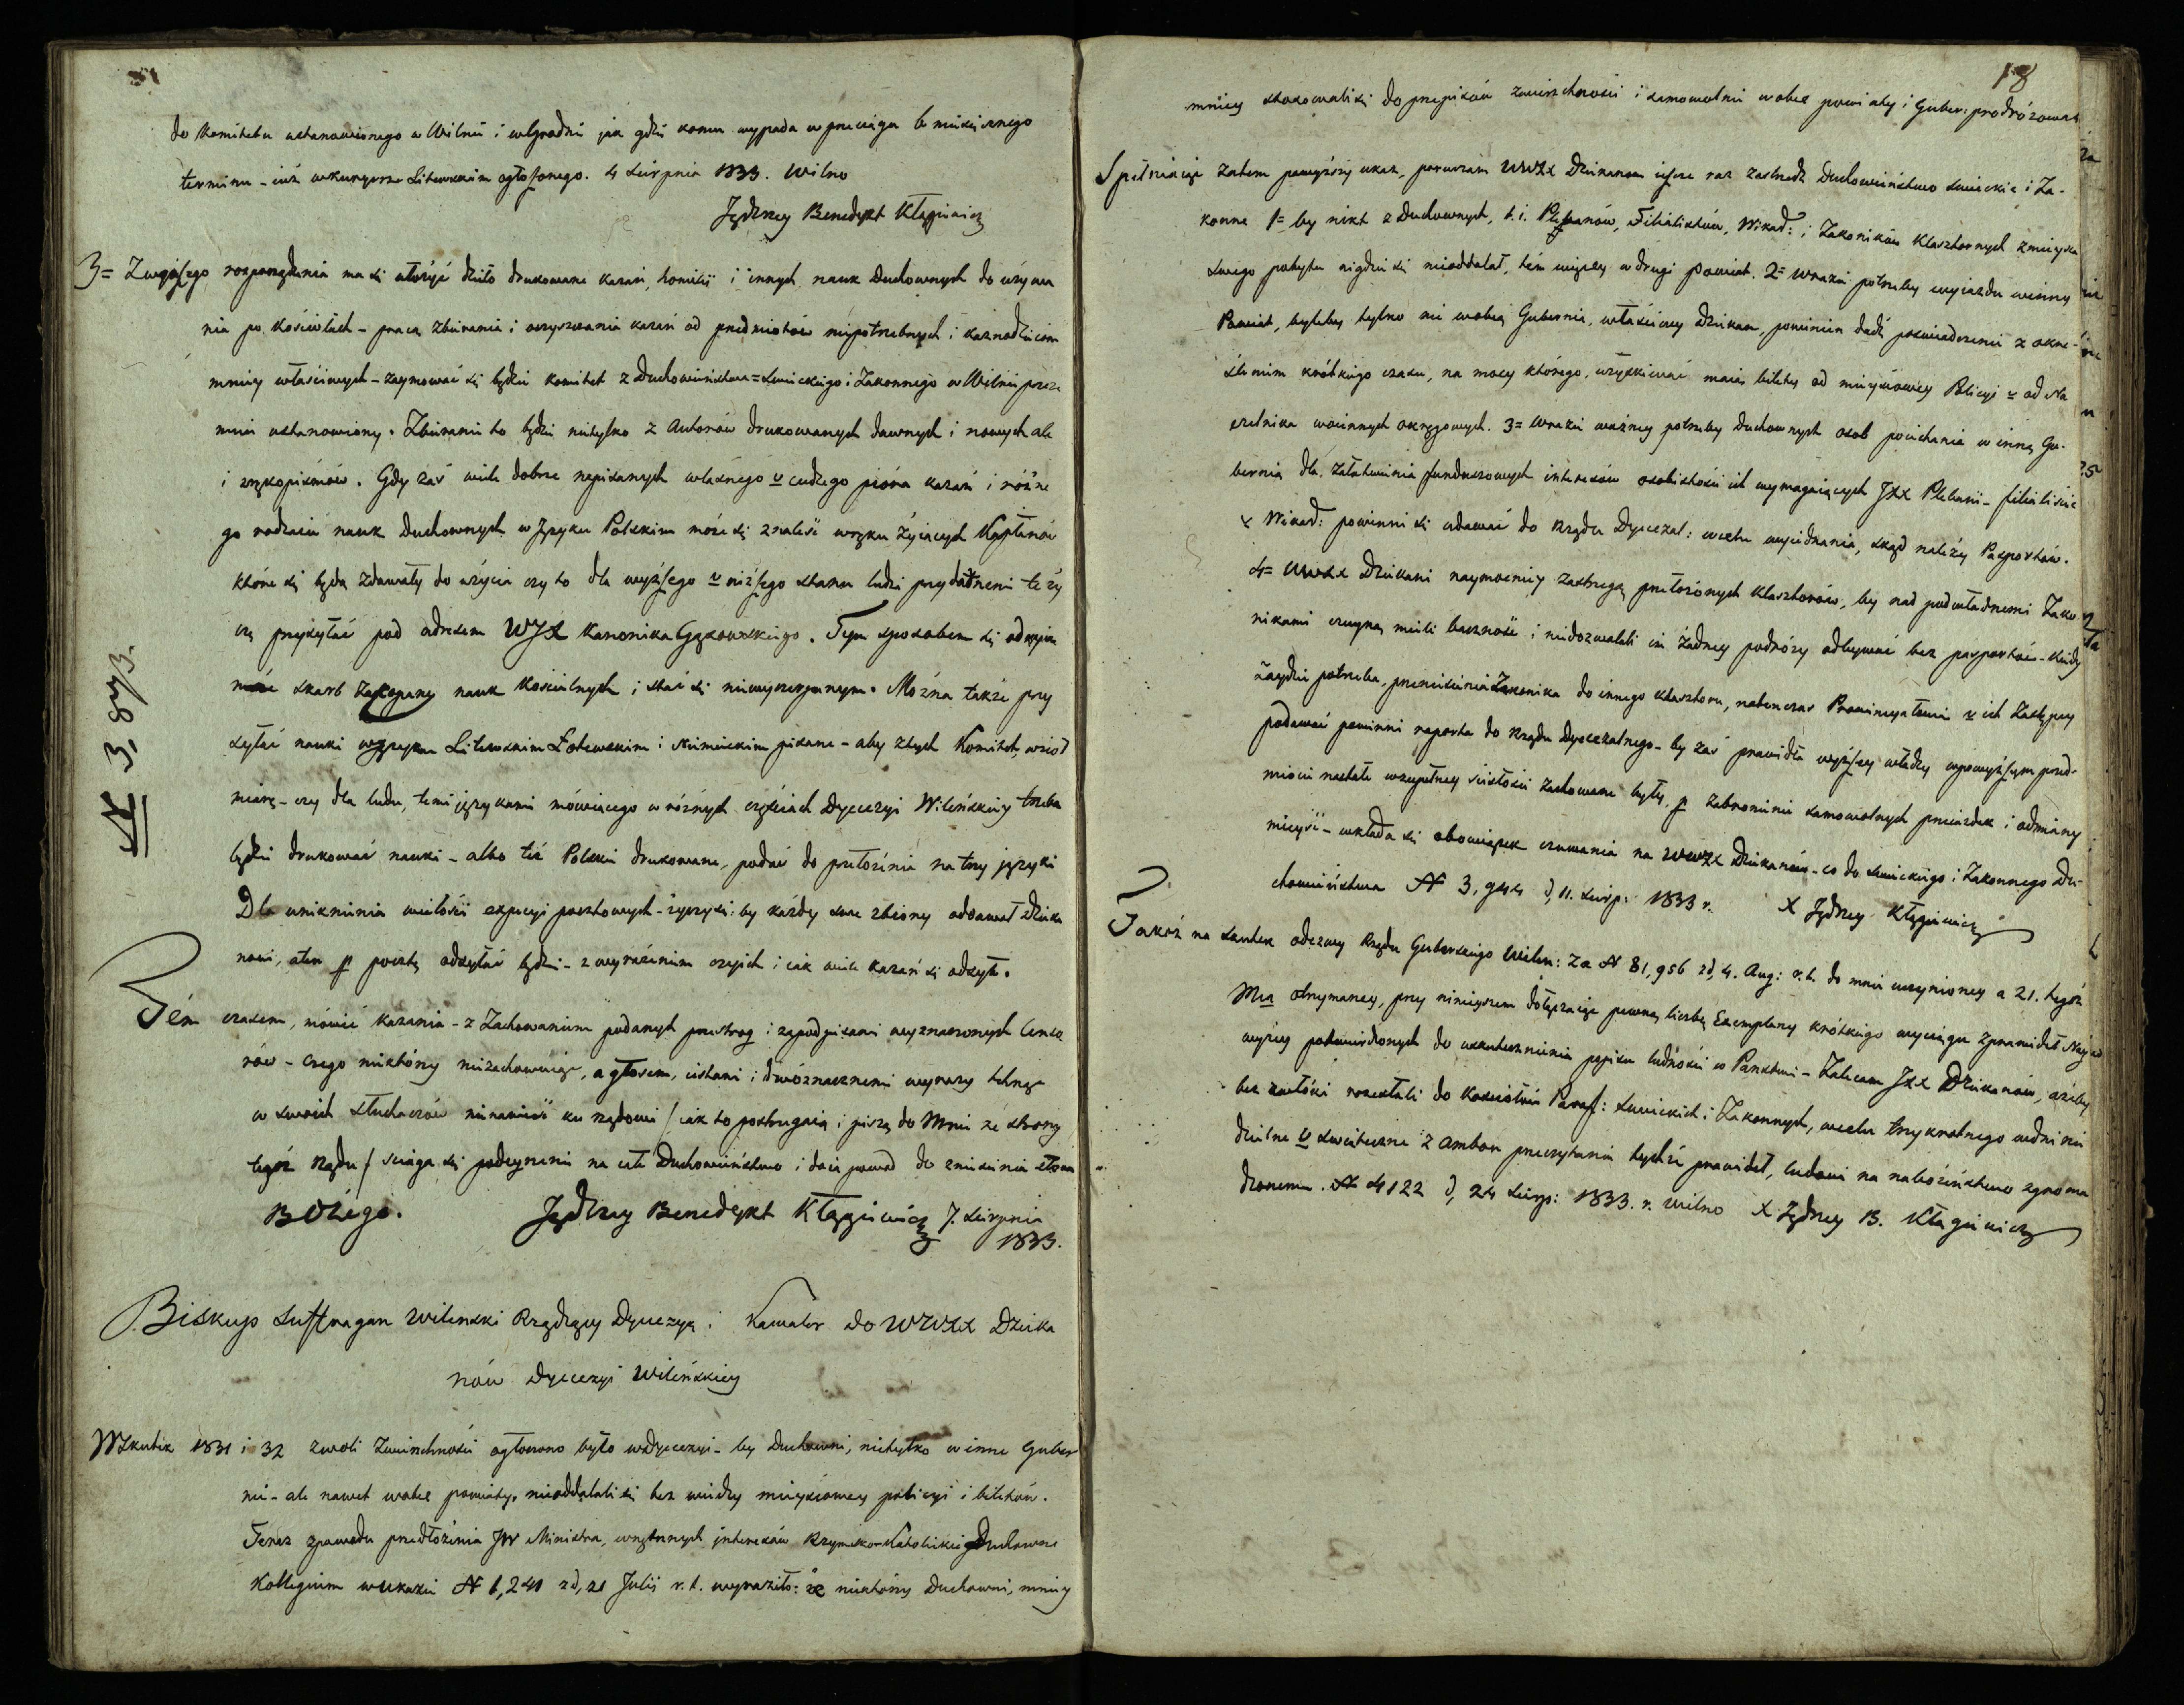 do Komitetu ustanowionego w Wilnie i w Grodnie jak gdzie komu wypada w przeciągu 6 miesięcznego
terminu - iuż w kuryerze Litewskim ogłoszonego. 4 Sierpnia 1833. Wilno
Jędrzey Benedykt Kłągiewicz
3= Z wyższego rozporządzenia ma się ułożyć dzieło drukowane kazań, homilii i innych nauk Duchownych do używa
nia po Kościołach - pracą zbierania i oczyszczania kazań od przedmiotów niepotrzebnych i kaznodzieiom
mniey właściwych - zaymować się będzie komitet z Duchowieństwa = Swieckiego i Zakonnego w Wilnie przeze
mnie ustanowiony. Zbieranie to będzie nietylko z Autorów drukowanych dawnych i nowych ale
i z rękopismów. Gdy zaś wiele dobrze napisanych własnego v cudzego pióra kazań i różne
go rodzaiu nauk Duchownych w Języku Polskim może się znaleść w ręku żyiących Kapłanów
które się będą zdawały do użycia czy to dla wyższego v niższego stanu ludzi przydatnemi te ży
czę przysyłać pod adresem WJX Kanonika . Tym sposobem się
może skarb zakopany nauk Kościelnych i stać się niewyczerpanym. Można także przy
syłać nauki w języku Litewskim Łotewskim i Niemieckim pisane - aby z tych Komitet, wziął
miarę - czy dla ludu, temi językami mówiącego w różnych częściach Dyecezyi Wileńskiey trzeba
będzie drukować nauki - albo też Polskie drukowane, podać do przełożenia na trzy języki
Dla uniknienia wielości expecyi pocztowych - życzy się: by każdy swe zbiory oddawał Dzieka
nowi, a ten p pocztę odsyłać będzie - z wyrażeniem czyich i iak wiele kazań się odsyła.
Tém czasem, mówić kazania - z zachowaniem podanych przestrog i za podpisami wyznaczonych Cenzo
rów - czego niektórzy niezachowuiąc, a głosem, i dwóznacznemi wyrazy tchnąc
w swoich słuchaczów nienawiść ku rządowi / iak to postrzegaią i piszą do Mnie ze strony
tegóż Rządu / sciąga się podeyrzenie na całe Duchowieństwo i daie powod do zniesienia słowa
Bożego. Jędrzey Benedykt Kłągiewicz 7. Sierpnia
1833.
N 3, 873.
Biskup Suffragan Wilenski Rządzący Dyecezyą i Kawaler do WWXX Dzieka
nów Dyecezyi Wileńskiey
W Skutek 1831 i 32 z woli Zwierzchności ogłoszono było w Dyecezyi - by Duchowni, nietylko w inne Guber
nie - ale nawet w obce powiaty, nieoddalali się bez wiedzy mieyscowey policyi i biletów.
Teraz z powodu przedłożenia JW Ministra, wnętrznych interesów Rzymsko-Katolickie Duchowne
Kollegium w ukazie N 1,241 z d, 21 Julii r. t. wyraziło: że niektórzy Duchowni, mniey
18
mniey stosowali się do przepisów zwierzchności i samowolnie w obce powiaty i Guber: podróżowali
Spełniaiąc zatem powyższy ukaz, poruczam WWXX Dziekanom ieszcze raz zastrzedz Duchowieństwo swieckie i Za-
konne 1= by nikt z Duchownych, t. i. Plebanów, Filialistów, Wikar: i Zakoników Klasztornych z mieysca
swego pobytu nigdzie się nieoddalał, tém więcey w drugi powiat. 2= W razie potrzeby wyiazdu w inny
Powiat, byleby tylko nie w obcą Gubernię, właściwy Dziekan, powinien dadź poświadczenie z okre-
śleniem krótkiego czasu, na mocy którego, uzyskiwać maią bilety od mieyscowey Policyi v od Na
czelnika woiennych okręgowych. 3= W razie ważney potrzeby Duchownych osob poiechania w inną Gu-
bernią dla załatwienia funduszowych interesów osobistości ich wymagaiących JXX Plebani - filialiscie
v Wikar: powinni się udawać do Rządu Dyecezal: w celu wyiednania, skąd należy Pasportów.
4= WWXX Dziekani naymocniey zastrzegą przełożonych Klasztorów, by nad podwładnemi Zako
nikami czuyną mieli baczność i niedozwalali im żadney podróży odbywać bez pasportów - Kiedy
zaydzie potrzeba, przeniesienia Zakonika do innego Klasztoru, natenczas Prowincyałowie v ich Zastępcy
podawać powinni raporta do Rządu Dyecezalnego - by zaś prawidła wyższey władzy w powyższym przed-
miocie nastałe w zupełney ścisłości zachowane były, p zabronienie samowolnych przeiazdek i odmiany
mieysc - wkłada się obowiązek czuwania na WWXX Dziekanów - co do swieckiego i Zakonnego Du-
chowieństwa N 3,944 d, 11. Sierp: 1833 r. X Jędrzey Kłągiewicz
Takoż na skutek odezwy Rządu Guberskiego Wilen: za N 81,956 z d, 4. Aug: r. t. do mnie uczynioney a 21. tegoż
Mca otrzymaney, przy nineyszem dołączaiąc pewną liczbę Exemplarzy krótkiego wyciągu z prawideł Nay
wyżey potwierdzonych do uskutecznienia popisu ludności w Panstwie - Zalecam JXX Dziekanów, ażeby
bez zwłoki rozesłali do Kościołów Paraf: swieckich i Zakonnych, w celu trzykrotnego w dni nie
dzielne v swiąteczne z ambon przeczytania tychże prawideł, ludowi na nabożeństwo zgroma
dzonemu. N 4122 d, 24 Sierp: 1833. r. Wilno X Jędrzey B. Kłągiewicz